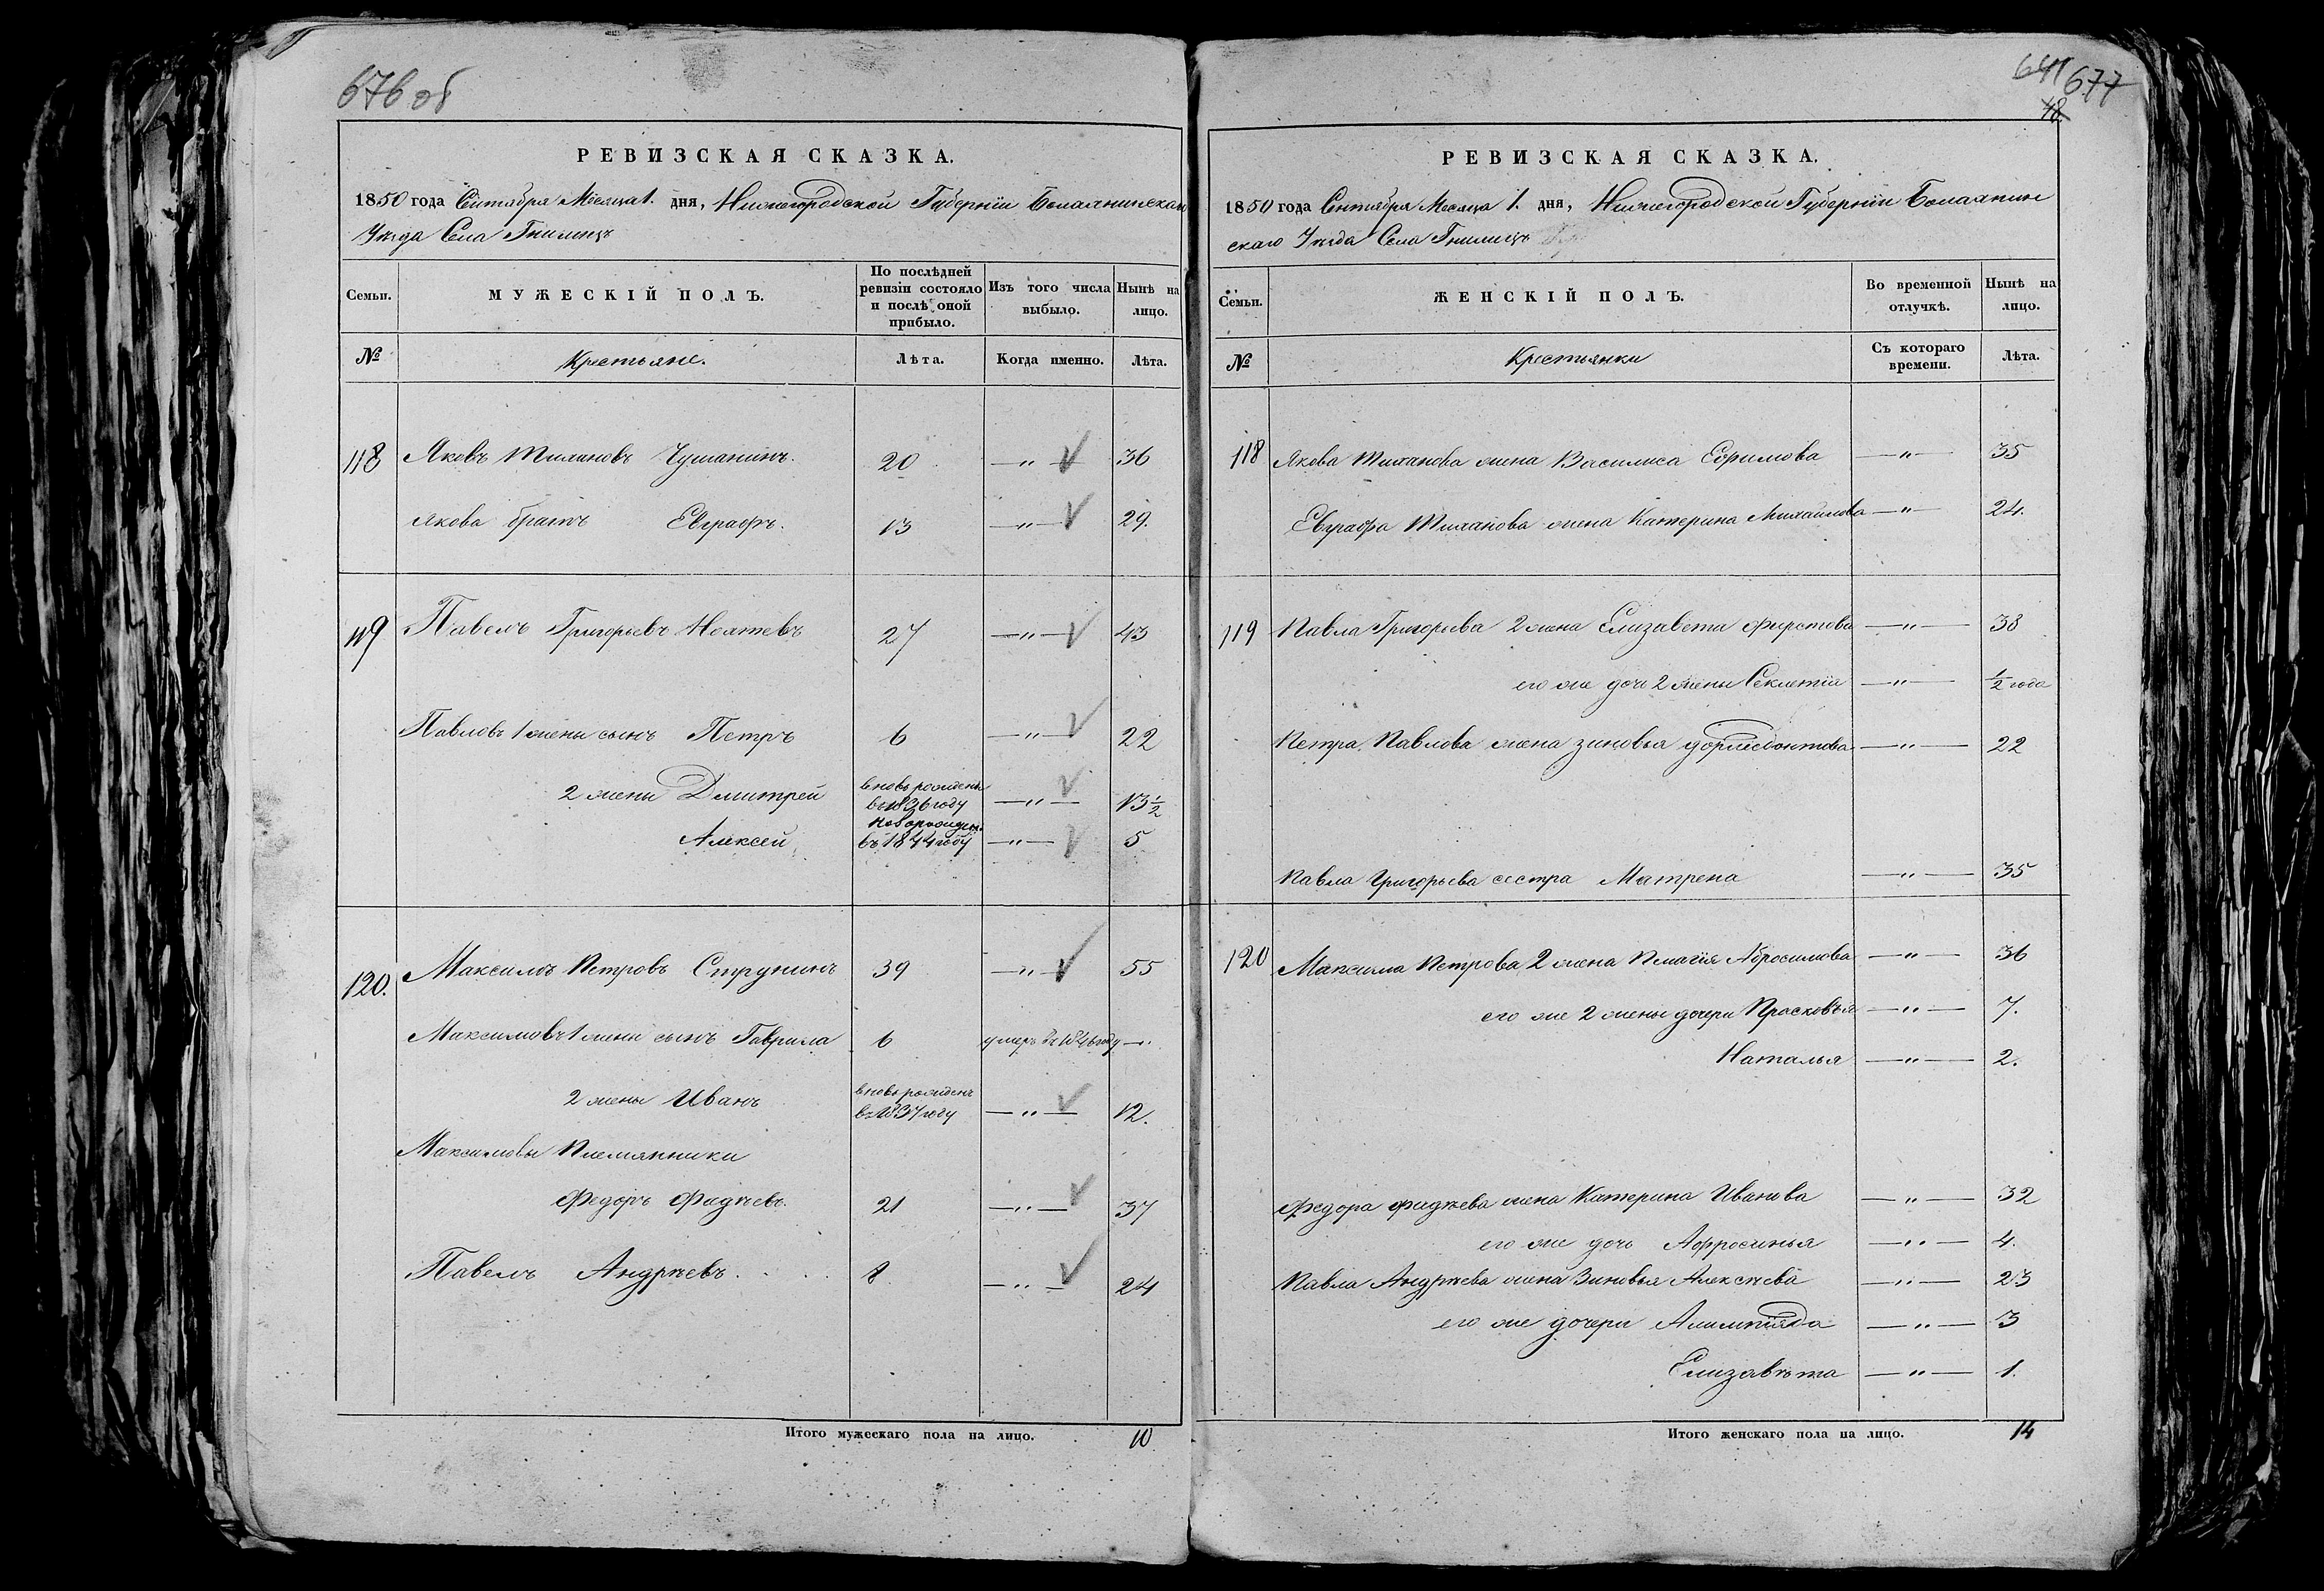 676 об
РЕВИЗСКАЯ СКАЗКА.
1850 года Сентября Месяца 1. дня, Нижегородской Губерніи Балахнинскаго
Уѣзда Села Гнилицъ
Семьи.
МУЖЕСКІЙ ПОЛЪ.
По послѣдней ревизіи состояло и послѣ оной прибыло.
Изъ того числа выбыло.
Нынѣ на лицо.
№ Крестьяне. Лѣта. Когда именно. Лѣта.
118 Яковъ Тихановъ 20 — " — 36
Якова братъ Евграфъ. 13 — " — 29.
119 Павелъ Григорьевъ 27 — " — 43
Павловъ 1 жены сынъ Петръ 6 — " — 22
2 жены Дмитрей вновь рожденъ в 1836 году — " — 13 1/2
Алексей въ 1844 году — " — 5
120. Максимъ Петровъ Струнинъ 39 — " — 55
Максимовъ 1 жены сынъ Гаврила 6 умеръ въ 1846 году — "
2 жены Иванъ вновь рожденъ въ 1837 году — " — 12.
Максимовы Племянники
Федоръ Фадѣевъ. 21 — " — 37
Павелъ Андрѣевъ. 8 — " — 24
Итого мужескаго пола на лицо. 10
641 677
48
РЕВИЗСКАЯ СКАЗКА.
1850 года Сентября Месяца 1. дня, Нижегородской Губерніи Балахнин
скаго Уѣзда Села Гнилицъ
Семьи.
ЖЕНСКІЙ ПОЛЪ.
Во временной отлучкѣ.
Нынѣ на лицо.
№ Крестьянки Съ котораго времени. Лѣта.
118 Якова Тиханова жена Василиса Ефимова — " — 35
Евграфа Тиханова жена Катерина Михайлова — " — 24.
119 Павла Григорьева 2 жена Елизавета Фирстова — " — 38
его же дочь 2 жены Секлетія — " — 1/2 года
Петра Павлова жена Зиновья Дормедонтова — " — 22
Павла Григорьева сестра Матрена — " — 35
120 Максима Петрова 2 жена Пелагія Абросимова — " — 36
его же 2 жены дочери Прасковья — " — 7.
Наталья — " — 2.
Федора Фадѣева жена Катерина Иванова — " — 32
его же дочь Афросинья — " — 4.
Павла Андрѣева жена Зиновья Алексѣева — " — 23
его же дочери Алимпіяда — " — 3
Елизавѣта — " — 1.
Итого женскаго пола на лицо. 14